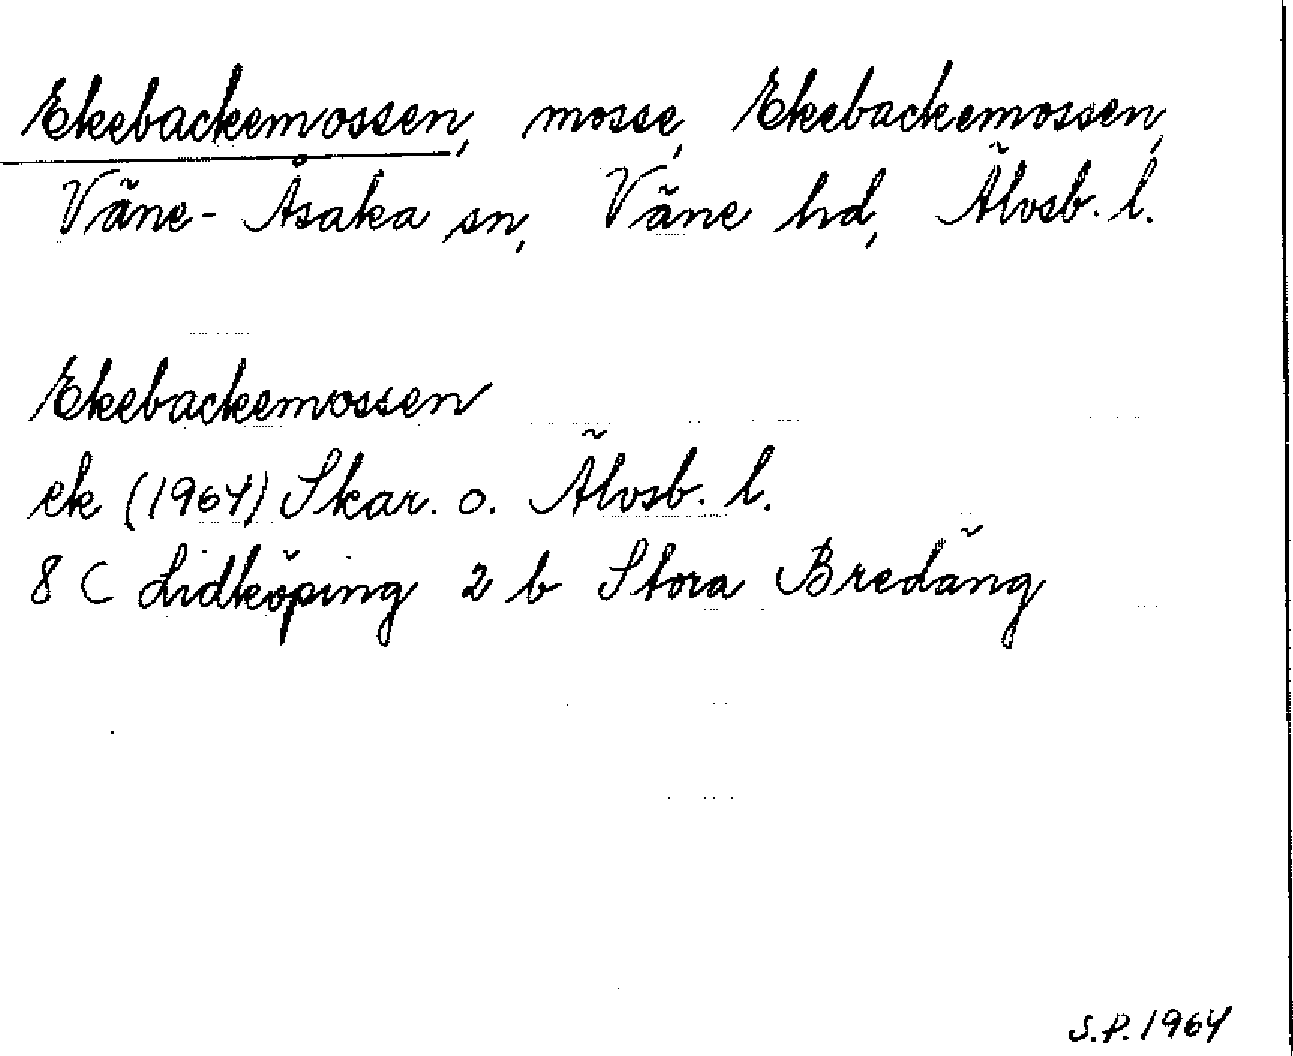 Ekebackemossen, mosse, Ekebackemossen,
Väne-Åsaka sn, Väne hd, Älvsb. l.
Ekebackemossen
ek (1964) Skar. o. Älvsb. l.
8 C Lidköping 2 b Stora Bredäng
S.P. 1964